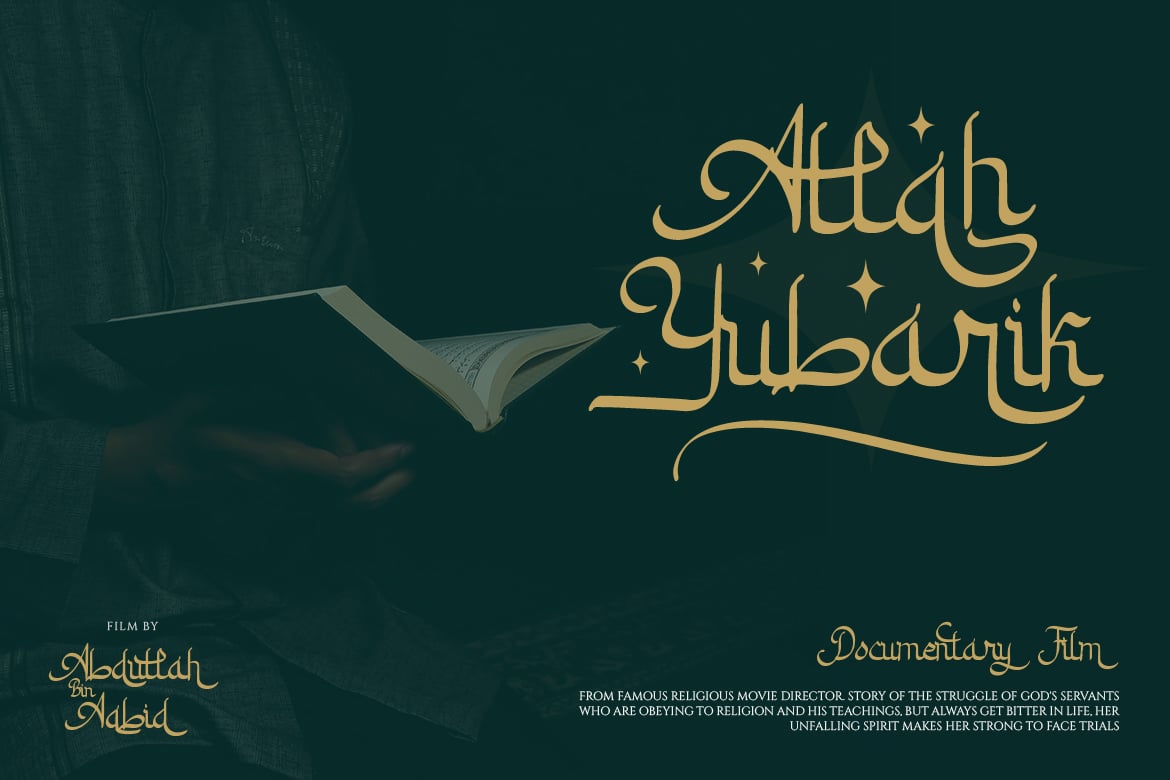 Allah
Yubarik
FILM BY
Abdullah
Bin
Aabid
Documentary Film
FROM FAMOUS RELIGIOUS MOVIE DIRECTOR. STORY OF THE STRUGGLE OF GOD'S SERVANTS
WHO ARE OBEYING TO RELIGION AND HIS TEACHINGS, BUT ALWAYS GET BITTER IN LIFE, HER
UNFALLING SPIRIT MAKES HER STRONG TO FACE TRIALS